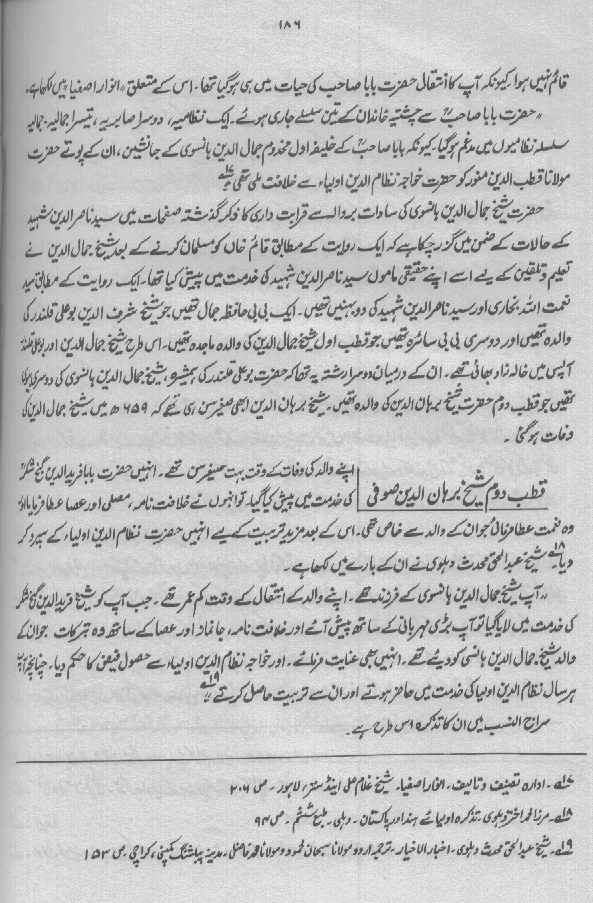 ۱۸۶
قائم نہیں ہوا کیونکہ آپ کا انتقال حضرت بابا صاحب کی حیات میں ہی ہو گیا تھا۔ اس کے متعلق "انوار اصفیا" میں لکھا ہے۔
"حضرت بابا صاحبؒ سے چشتیہ خاندان کے تین سلسلے جاری ہوئے۔ ایک نظامیہ، دوسرا صابریہ، تیسرا جمالیہ۔ جمالیہ
سلسلہ نظامیوں میں مدغم ہو گیا۔ کیونکہ بابا صاحبؒ کے خلیفہ اول مخدوم جمال الدین ہانسوی کے جانشین، ان کے پوتے حضرت
مولانا قطب الدین منور کو حضرت خواجہ نظام الدین اولیاء سے خلافت ملی تھی۱۷؎
حضرت شیخ جمال الدین ہانسوی کی سادات بروالہ سے قرابت داری کا ذکر گذشتہ صفحات میں سید ناصر الدین شہید
کے حالات کے ضمن میں گزر چکا ہے کہ ایک روایت کے مطابق قائم خاں کو مسلمان کرنے کے بعد شیخ جمال الدین نے
تعلیم و تلقین کے لیے اسے اپنے حقیقی ماموں سید ناصر الدین شہید کی خدمت میں پیش کیا تھا۔ ایک روایت کے مطابق سید
نعمت اللہ بخاری اور سید ناصر الدین شہید کی دو بہنیں تھیں۔ ایک بی بی حافظہ جمال تھیں جو شیخ شرف الدین بوعلی قلندر کی
والدہ تھیں اور دوسری بی بی سائرہ تھیں جو قطب اول شیخ جمال الدین کی والدہ ماجدہ تھیں۔ اس طرح شیخ جمال الدین اور بوعلی قلندر
آپس میں خالہ زاد بھائی تھے۔ ان کے درمیان دوسرا رشتہ یہ تھا کہ حضرت بوعلی قلندر کی ہمشیرہ، شیخ جمال الدین ہانسوی کی دوسری بیوی
تھیں جو قطب دوم حضرت شیخ برہان الدین کی والدہ تھیں۔ شیخ برہان الدین ابھی صغیر سن ہی تھے کہ ۶۵۹ھ میں شیخ جمال الدین کی
وفات ہو گئی۔
قطب دوم شیخ برہان الدین صوفی
اپنے والد کی وفات کے وقت بہت صغیر سن تھے۔ انہیں حضرت بابا فرید الدین گنج شکرؒ
کی خدمت میں پیش کیا گیا، تو انہوں نے خلافت نامہ، مصلیٰ اور عصا عطا فرمایا اور
وہ نعمت عطا فرمائی جو ان کے والد سے خاص تھی۔ اس کے بعد مزید تربیت کے لیے انہیں حضرت نظام الدین اولیاء کے سپرد کر
دیا۔۱۸؎ شیخ عبدالحق محدث دہلوی نے ان کے بارے میں لکھا ہے۔
"آپ شیخ جمال الدین ہانسوی کے فرزند تھے۔ اپنے والد کے انتقال کے وقت کم عمر تھے۔ جب آپ کو شیخ فرید الدین گنج شکر
کی خدمت میں لایا گیا تو آپ بڑی مہربانی کے ساتھ پیش آئے اور خلافت نامہ، جانماز اور عصا کے ساتھ وہ تبرکات جو ان کے
والد شیخ جمال الدین ہانسی کو دیئے تھے۔ انہیں بھی عنایت فرمائے۔ اور خواجہ نظام الدین اولیاء سے حصول فیض کا حکم دیا۔ چنانچہ آپ
ہر سال نظام الدین اولیا کی خدمت میں حاضر ہوتے اور ان سے تربیت حاصل کرتے"۱۹؎
سراج النسب میں ان کا تذکرہ اس طرح ہے۔
۱۷؎۔ ادارہ تصنیف و تالیف۔ انوار اصفیا۔ شیخ غلام علی اینڈ سنز، لاہور۔ ص ۲۰۶
۱۸؎۔ مرزا محمد اختر دہلوی۔ تذکرہ اولیائے ہند اور پاکستان۔ دہلی۔ طبع ششم۔ ص ۹۴
۱۹؎۔ شیخ عبدالحق محدث دہلوی۔ اخبار الاخیار۔ ترجمہ اردو مولانا سبحان محمود و مولانا محمد فاضل۔ مدینہ پبلشنگ کمپنی، کراچی۔ ص ۱۵۳